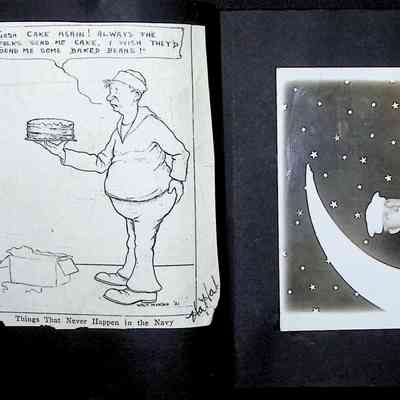 GOSH CAKE AGAIN! ALWAYS THE
FOLKS SEND ME CAKE, I WISH THEY'D
SEND ME SOME BAKED BEANS!"
Things That Never Happen in the Navy
Ha Ha!